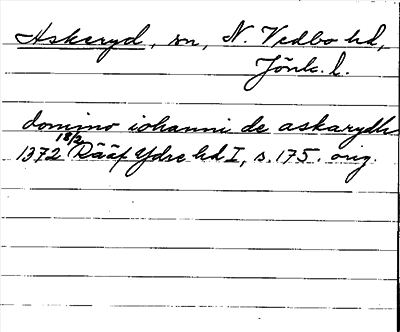 Askeryd, sn, N. Vedbo hd,
Jönk. l.
domino iohanni de askarydh
1372 18/2 Rääf Ydre hd I, s. 175. orig.